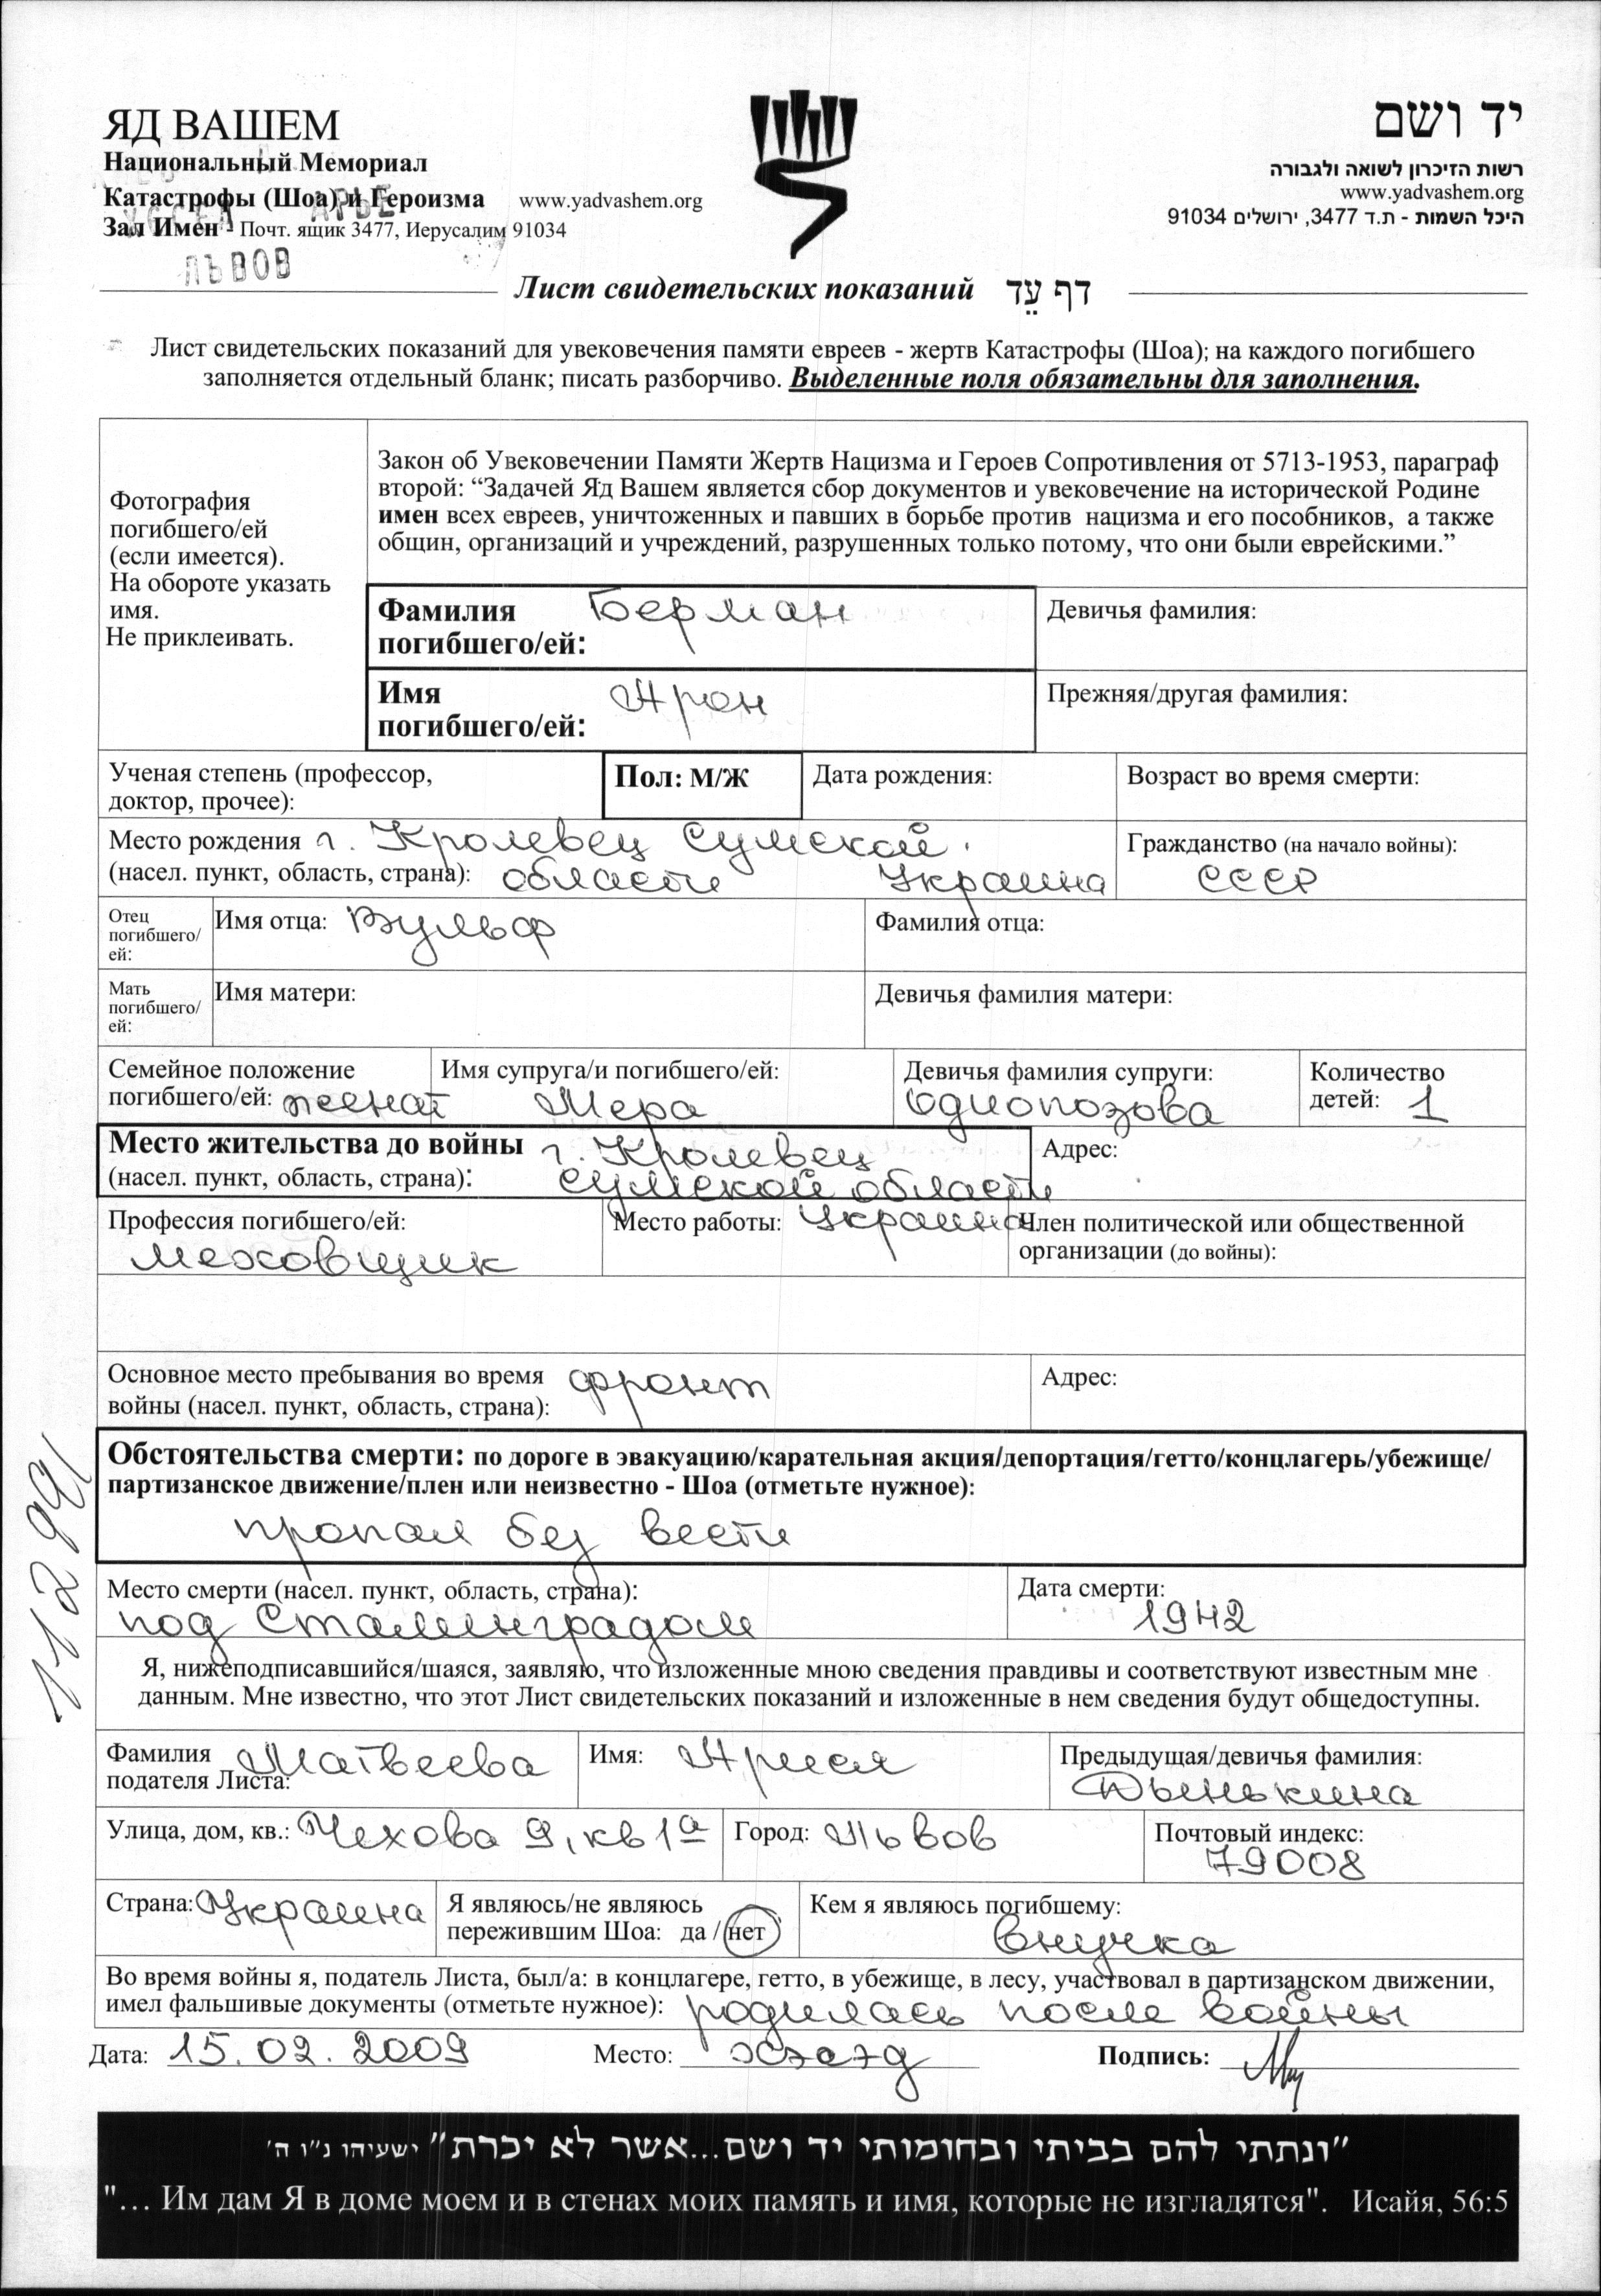 ЯД ВАШЕМ
Национальный Мемориал
Катастрофы (Шоа) и Героизма www.yadvashem.org
Зал Имен - Почт. ящик 3477, Иерусалим 91034
АРЬЕ
ЛЬВОВ
יד ושם
רשות הזיכרון לשואה ולגבורה
www.yadvashem.org
היכל השמות - ת.ד 3477, ירושלים 91034
Лист свидетельских показаний דף עֵד
Лист свидетельских показаний для увековечения памяти евреев - жертв Катастрофы (Шоа); на каждого погибшего
заполняется отдельный бланк; писать разборчиво. Выделенные поля обязательны для заполнения.
Фотография
погибшего/ей
(если имеется).
На обороте указать
имя.
Не приклеивать.
Закон об Увековечении Памяти Жертв Нацизма и Героев Сопротивления от 5713-1953, параграф
второй: “Задачей Яд Вашем является сбор документов и увековечение на исторической Родине
имен всех евреев, уничтоженных и павших в борьбе против нацизма и его пособников, а также
общин, организаций и учреждений, разрушенных только потому, что они были еврейскими.”
Фамилия погибшего/ей: Берман
Девичья фамилия:
Имя погибшего/ей: Арон
Прежняя/другая фамилия:
Ученая степень (профессор,
доктор, прочее):
Пол: М/Ж
Дата рождения:
Возраст во время смерти:
Место рождения г. Кролевец Сумской
(насел. пункт, область, страна): области Украина
Гражданство (на начало войны):
СССР
Отец
погибшего/
ей:
Имя отца: Вульф
Фамилия отца:
Мать
погибшего/
ей:
Имя матери:
Девичья фамилия матери:
Семейное положение
погибшего/ей: женат
Имя супруга/и погибшего/ей:
Мера
Девичья фамилия супруги:
Однопозова
Количество
детей: 1
Место жительства до войны г. Кролевец
(насел. пункт, область, страна): Сумской области
Украина
Адрес:
Профессия погибшего/ей:
меховщик
Место работы:
Член политической или общественной
организации (до войны):
Основное место пребывания во время
войны (насел. пункт, область, страна): фронт
Адрес:
Обстоятельства смерти: по дороге в эвакуацию/карательная акция/депортация/гетто/концлагерь/убежище/
партизанское движение/плен или неизвестно - Шоа (отметьте нужное):
пропал без вести
Место смерти (насел. пункт, область, страна):
под Сталинградом
Дата смерти:
1942
Я, нижеподписавшийся/шаяся, заявляю, что изложенные мною сведения правдивы и соответствуют известным мне
данным. Мне известно, что этот Лист свидетельских показаний и изложенные в нем сведения будут общедоступны.
Фамилия
подателя Листа: Матвеева
Имя:
Предыдущая/девичья фамилия:
Дынькина
Улица, дом, кв.: Чехова 9, кв 1а
Город: Львов
Почтовый индекс:
79008
Страна: Украина
Я являюсь/не являюсь
пережившим Шоа: да / нет
Кем я являюсь погибшему:
внучка
Во время войны я, податель Листа, был/а: в концлагере, гетто, в убежище, в лесу, участвовал в партизанском движении,
имел фальшивые документы (отметьте нужное): родилась после войны
Дата: 15.02.2009
Место: хэсэд
Подпись:
"ונתתי להם בביתי ובחומותי יד ושם...אשר לא יכרת" ישעיהו נ"ו ה'
"… Им дам Я в доме моем и в стенах моих память и имя, которые не изгладятся". Исайя, 56:5